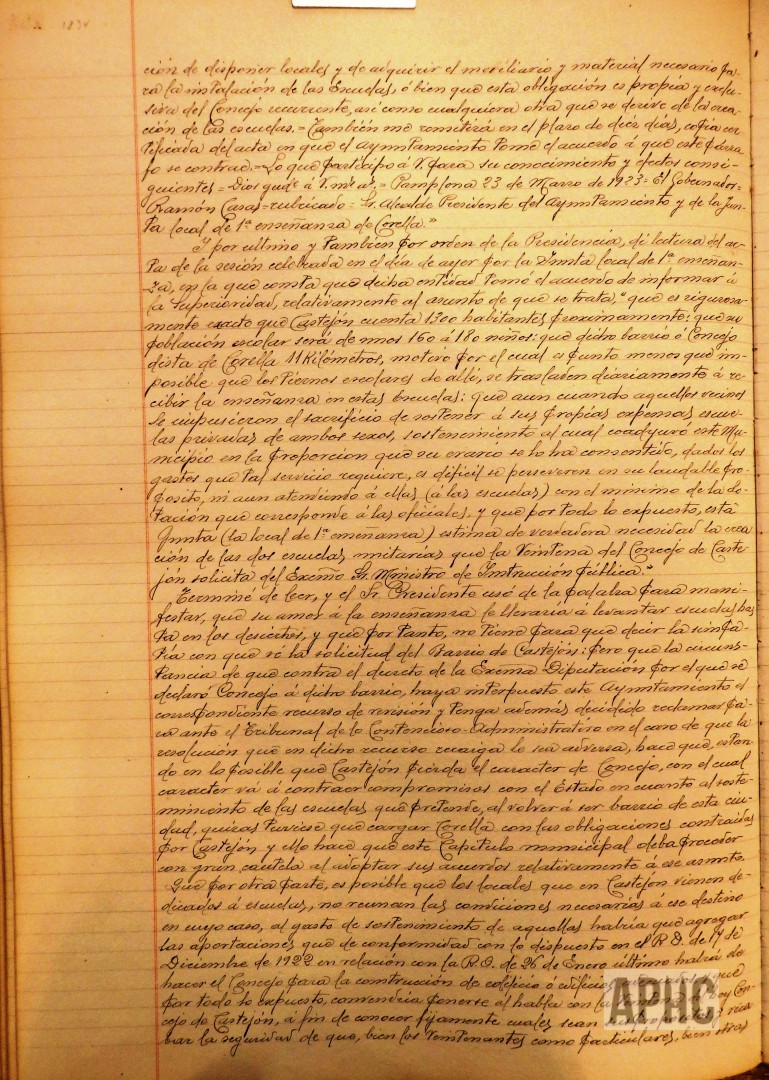 ción de disponer locales y de adquirir el moviliario y material necesario pa-
ra la instalación de las Escuelas, ó bien que esta obligación es propia y exclu-
siva del Concejo recurrente, asi como cualquiera otra que se derive de la crea-
ción de las escuelas.= También me remitirá en el plazo de diez días, copia cer-
tificada del acta en que el Ayuntamiento tome el acuerdo á que este párra-
fo se contrae.= Lo que participo á V. para su conocimiento y efectos consi-
guientes = Dios gude á V. ms as. = Pamplona 23 de Marzo de 1923= El Gobernador=
Ramón Casas=rubricado= Sr. Alcalde Presidente del Ayuntamiento y de la Jun-
ta local de 1ª enseñanza de Corella."
Y por ultimo y también por orden de la Presidencia, dí lectura del ac-
ta de la sesión celebrada en el día de ayer por la Junta local de 1ª enseñan-
za, en la que consta que dicha entidad tomó el acuerdo de informar á
la superioridad, relativamente al asunto de que se trata, "que es rigurosa-
mente exacto que Castejón cuenta 1300 habitantes próximamente: que su
población escolar será de unos 160 á 180 niños: que dicho barrio ó Concejo
dista de Corella 11 Kilómetros, motivo por el cual es punto menos que im-
posible que los tiernos escolares de allí, se trasladen diariamente á re-
cibir la enseñanza en estas Escuelas: que aun cuando aquellos vecinos
se impusieron el sacrificio de sostener á sus propias expensas escue-
las privadas de ambos sexos, sostenimiento al cual coadyuvó este Mu-
nicipio en la proporcion que su erario se lo ha consentido, dados los
gastos que tal servicio requiere, es dificil se perseveren en su laudable pro-
posito, ni aun atendiendo á ellas (á las escuelas) con el minimo de la do-
tación que corresponde á las oficiales, y que por todo lo expuesto, esta
Junta (la local de 1ª enseñanza) estima de verdadera necesidad la crea-
ción de las dos escuelas unitarias que la Veintena del Concejo de Caste-
jón solicita del Excmo Sr. Ministro de Instrucción Pública."
Terminé de leer, y el Sr. Presidente usó de la palabra para mani-
festar, que su amor á la enseñanza le llevaría á levantar escuelas has
ta en los desiertos, y que por tanto, no tiene para que decir la simpa-
tía con que vé la solicitud del Barrio de Castejón: pero que la circuns-
tancia de que contra el decreto de la Exema Diputación por el que se
declaró Concejo á dicho barrio, haya interpuesto este Ayuntamiento el
correspondiente recurso de revisión y tenga además decidido reclamar pa-
ra ante el Tribunal de lo Contencioso-Administrativo en el caso de que la
resolución que en dicho recurso recaiga le sea adversa, hace que, estan-
do en lo posible que Castejón pierda el caracter de Concejo, con el cual
caracter vá á contraer compromisos con el Estado en cuanto al soste-
nimiento de las escuelas que pretende, al volver á ser barrio de esta ciu-
dad, quizas tuviese que cargar Corella con las obligaciones contraidas
por Castejón y ello hace que este Capitulo municipal deba proceder
con gran cautela al adoptar sus acuerdos relativamente á ese asunto.
Que por otra parte, es posible que los locales que en Castejón vienen de-
dicados á escuelas, no reunan las condiciones necesarias á ese destino
en cuyo caso, al gasto de sostenimiento de aquellas habría que agregar
las aportaciones que de conformidad con lo dispuesto en el R.D. de 17 de
Diciembre de 1922 en relación con la R.O. de 26 de Enero último habrá de
hacer el Concejo para la construcción de edificio ó edificios que
por todo lo expuesto, convendria ponerse al habla con la hoy Con-
cejo de Castejón, á fin de conocer fijamente cuales sean reca-
bar la seguridad de que, bien los Veintenantes como particulares, bien otros
APHC